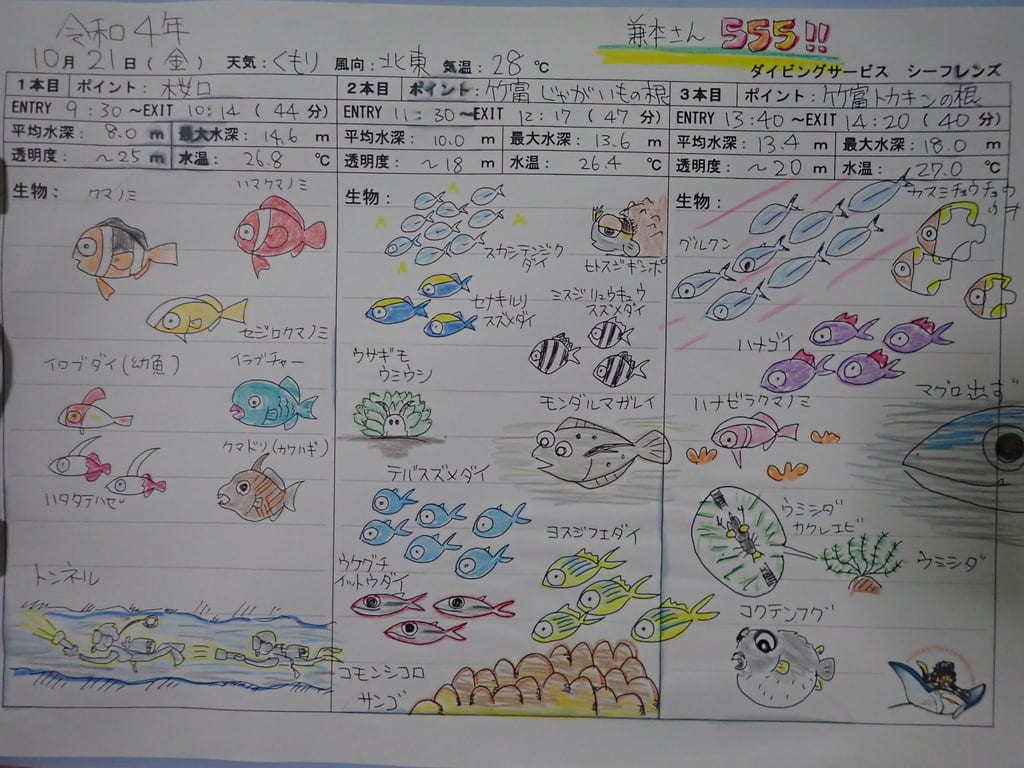 令和4年
兼本さん 555!!
10月21日(金) 天気:くもり 風向:北東 気温:28℃
ダイビングサービス シーフレンズ
1本目 ポイント:桜口
ENTRY 9:30〜EXIT 10:14(44分)
平均水深: 8.0 m 最大水深: 14.6 m
透明度: 〜25 m 水温: 26.8 ℃
生物:
クマノミ
ハマクマノミ
セジロクマノミ
イロブダイ(幼魚)
イラブチャー
クマドリ(カワハギ)
ハタタテハゼ
トンネル
2本目 ポイント:竹富 じゃがいもの根
ENTRY 11:30〜EXIT 12:17(47分)
平均水深: 10.0 m 最大水深: 13.6 m
透明度: 〜18 m 水温: 26.4 ℃
生物:
スカシテンジク
ダイ
ヒトスジギンポ
セナキルリ
スズメダイ
ミスジリュウキュウ
スズメダイ
ウサギモ
ウミウシ
モンダルマガレイ
デバスズメダイ
ヨスジフエダイ
ウケグチ
イットウダイ
コモンシコロ
サンゴ
3本目 ポイント:竹富トカキンの根
ENTRY 13:40〜EXIT 14:20(40分)
平均水深: 13.4 m 最大水深: 18.0 m
透明度: 〜20 m 水温: 27.0 ℃
生物:
カスミチョウチョウ
ウオ
グルクン
ハナゴイ
マグロ出ず
ハナビラクマノミ
ウミシダ
カクレエビ
ウミシダ
コクテンフグ